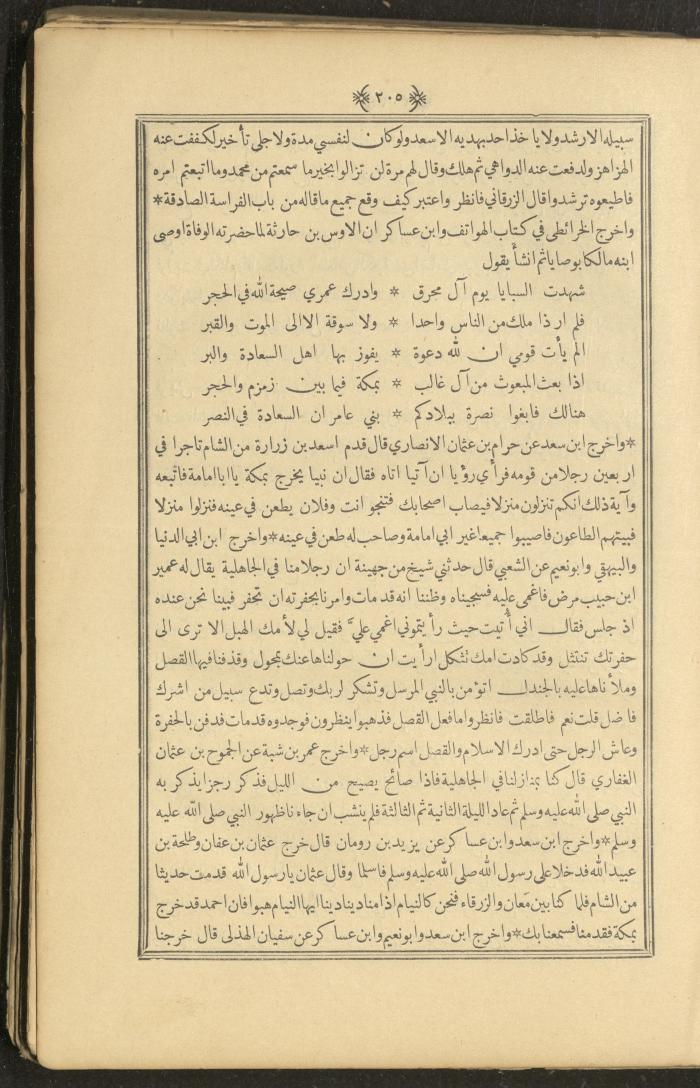 ٢٠٥
سبيله الارشد ولا ياخذ احد بهديه الا سعد ولو كان لنفسي مدة ولاجلى تأخير لكففت عنه
الهزاهز ولدفعت عنه الدواهي ثم هلك وقال لهم مرة لن تزالوا بخير ما سمعتم من محمد وما اتبعتم امره
فاطيعوه ترشدوا قال الزرقاني فانظر واعتبر كيف وقع جميع ما قاله من باب الفراسة الصادقة *
واخرج الخرائطى في كتاب الهواتف وابن عساكر ان الاوس بن حارثة لما حضرته الوفاة اوصى
ابنه مالكا بوصايا ثم انشأ يقول
شهدت السبايا يوم آل محرق * وادرك عمري صيحة الله في الحجر
فلم ار ذا ملك من الناس واحدا * ولا سوقة الا الى الموت والقبر
الم يأت قومي ان لله دعوة * يفوز بها اهل السعادة والبر
اذا بعث المبعوث من آل غالب * بمكة فيما بين زمزم والحجر
هنالك فابغوا نصرة ببلادكم * بني عامر ان السعادة في النصر
* واخرج ابن سعد عن حرام بن عثمان الانصاري قال قدم اسعد بن زرارة من الشام تاجرا في
اربعين رجلا من قومه فرأى رؤيا ان آتيا اتاه فقال ان نبيا يخرج بمكة يا ابا امامة فاتبعه
وآية ذلك انكم تنزلون منزلا فيصاب اصحابك فتنجو انت وفلان يطعن في عينه فنزلوا منزلا
فبيتهم الطاعون فاصيبوا جميعا غير ابي امامة وصاحب له طعن في عينه * واخرج ابن ابي الدنيا
والبيهقي وابو نعيم عن الشعبي قال حدثني شيخ من جهينة ان رجلا منا في الجاهلية يقال له عمير
ابن حبيب مرض فاغمى عليه فسجيناه وظننا انه قد مات وامرنا بحفرته ان تحفر فبينا نحن عنده
اذ جلس فقال اني أُتيت حيث رأيتموني اغمي عليَّ فقيل لي لأمك الهبل الا ترى الى
حفرتك تنتثل وقد كادت امك تثكل ارأيت ان حولناها عنك بمحول وقذفنا فيها القصل
وملأناها عليه بالجندل اتؤمن بالنبي المرسل وتشكر لربك وتصل وتدع سبيل من اشرك
فاضل قلت نعم فاطلقت فانظروا ما فعل القصل فذهبوا ينظرون فوجدوه قد مات فدفن بالحفرة
وعاش الرجل حتى ادرك الاسلام والقصل اسم رجل * واخرج عمر بن شبة عن الجموح بن عثمان
الغفاري قال كنا بمنازلنا في الجاهلية فاذا صائح يصيح من الليل فذكر رجزا يذكر به
النبي صلى الله عليه وسلم ثم عاد الليلة الثانية ثم الثالثة فلم ينشب ان جاءنا ظهور النبي صلى الله عليه
وسلم * واخرج ابن سعد وابن عساكر عن يزيد بن رومان قال خرج عثمان بن عفان وطلحة بن
عبيد الله فدخلا على رسول الله صلى الله عليه وسلم فاسلما وقال عثمان يا رسول الله قدمت حديثا
من الشام فلما كنا بين مَعان والزرقاء فنحن كالنيام اذا مناد ينادينا ايها النيام هبوا فان احمد قد خرج
بمكة فقدمنا فسمعنا بك * واخرج ابن سعد وابو نعيم وابن عساكر عن سفيان الهذلى قال خرجنا